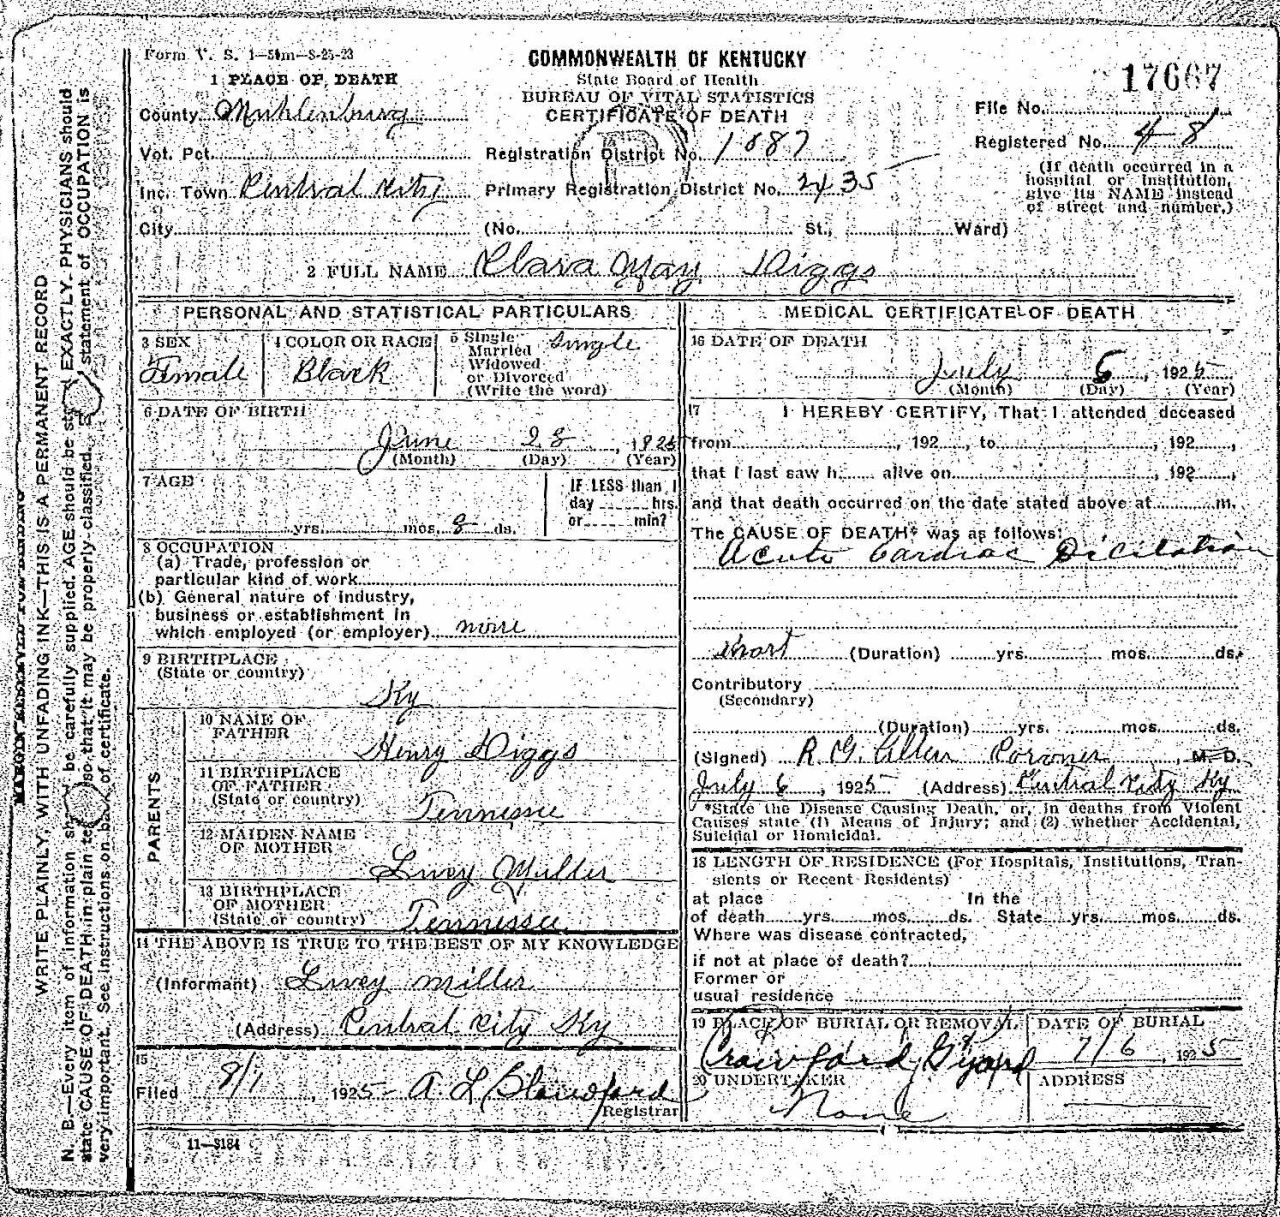 Form V. S. 1—50m—8-25-23
COMMONWEALTH OF KENTUCKY
State Board of Health
BUREAU OF VITAL STATISTICS
CERTIFICATE OF DEATH
17667
File No.
Registered No. 48
(If death occurred in a
hospital or institution,
give its NAME instead
of street and number.)
1 PLACE OF DEATH
County Muhlenburg
Vot. Pct.
Registration District No. 1087
Inc. Town Central City
Primary Registration District No. 2435
City
(No. St., Ward)
2 FULL NAME Clara May Diggs
PERSONAL AND STATISTICAL PARTICULARS
3 SEX
Female
4 COLOR OR RACE
Black
5 Single
Married
Widowed
or Divorced
(Write the word)
Single
6 DATE OF BIRTH
June 28, 1925
(Month) (Day) (Year)
7 AGE
yrs. mos. 8 ds.
IF LESS than 1
day hrs.
or min?
8 OCCUPATION
(a) Trade, profession or
particular kind of work
(b) General nature of industry,
business or establishment in
which employed (or employer) none
9 BIRTHPLACE
(State or country)
Ky
PARENTS
10 NAME OF
FATHER
Henry Diggs
11 BIRTHPLACE
OF FATHER
(State or country)
Tennessee
12 MAIDEN NAME
OF MOTHER
Livey Miller
13 BIRTHPLACE
OF MOTHER
(State or country)
Tennessee
14 THE ABOVE IS TRUE TO THE BEST OF MY KNOWLEDGE
(Informant) Livey Miller
(Address) Central City Ky
15
Filed 8/1, 1925 A. L. Blandford
Registrar
11—3184
MEDICAL CERTIFICATE OF DEATH
16 DATE OF DEATH
July 6, 1925
(Month) (Day) (Year)
17 I HEREBY CERTIFY, That I attended deceased
from , 192 , to , 192 ,
that I last saw h alive on , 192 ,
and that death occurred on the date stated above at m.
The CAUSE OF DEATH* was as follows:
Acute Cardiac Dilitation
(Duration) yrs. mos. ds.
Contributory
(Secondary)
(Duration) yrs. mos. ds.
(Signed) R. G. Allen Coroner, M. D.
July 6, 1925 (Address) Central City Ky
*State the Disease Causing Death, or, in deaths from Violent
Causes state (1) Means of Injury; and (2) whether Accidental,
Suicidal or Homicidal.
18 LENGTH OF RESIDENCE (For Hospitals, Institutions, Tran-
sients or Recent Residents)
at place In the
of death yrs. mos. ds. State yrs. mos. ds.
Where was disease contracted,
if not at place of death?
Former or
usual residence
19 PLACE OF BURIAL OR REMOVAL
Crawford G. yard
DATE OF BURIAL
7/6, 1925
20 UNDERTAKER
None
ADDRESS
WRITE PLAINLY, WITH UNFADING INK—THIS IS A PERMANENT RECORD
N. B.—Every item of information should be carefully supplied. AGE should be stated EXACTLY. PHYSICIANS should
state CAUSE OF DEATH in plain terms, so that it may be properly classified. statement of OCCUPATION is
very important. See instructions on back of certificate.